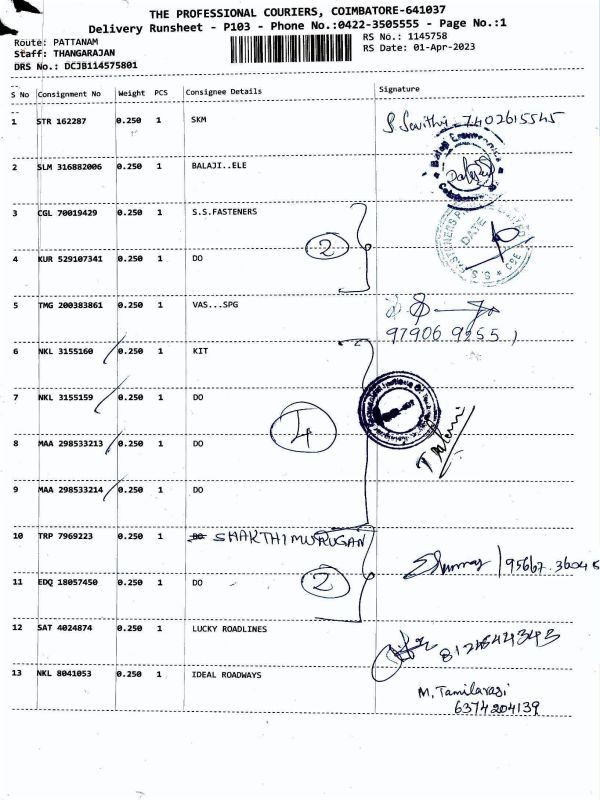 THE PROFESSIONAL COURIERS, COIMBATORE-641037
Delivery Runsheet - P103 - Phone No.:0422-3505555 - Page No.:1
Route: PATTANAM RS No.: 1145758
Staff: THANGARAJAN RS Date: 01-Apr-2023
DRS No.: DCJB114575801
S No Consignment No Weight PCS Consignee Details Signature
1 STR 162287 0.250 1 SKM 7402615545
2 SLM 316882006 0.250 1 BALAJI..ELE
3 CGL 70019429 0.250 1 S.S.FASTENERS
DATE
2
4 KUR 529107341 0.250 1 DO
5 TMG 200383861 0.250 1 VAS...SPG
97906 92551
6 NKL 3155160 0.250 1 KIT
7 NKL 3155159 0.250 1 DO
4
8 MAA 298533213 0.250 1 DO
9 MAA 298533214 0.250 1 DO
10 TRP 7969223 0.250 1 SHAKTHIMURUGAN
11 EDQ 18057450 0.250 1 DO
2
12 SAT 4024874 0.250 1 LUCKY ROADLINES
13 NKL 8041053 0.250 1 IDEAL ROADWAYS
M. Tamilarasi
6374204139